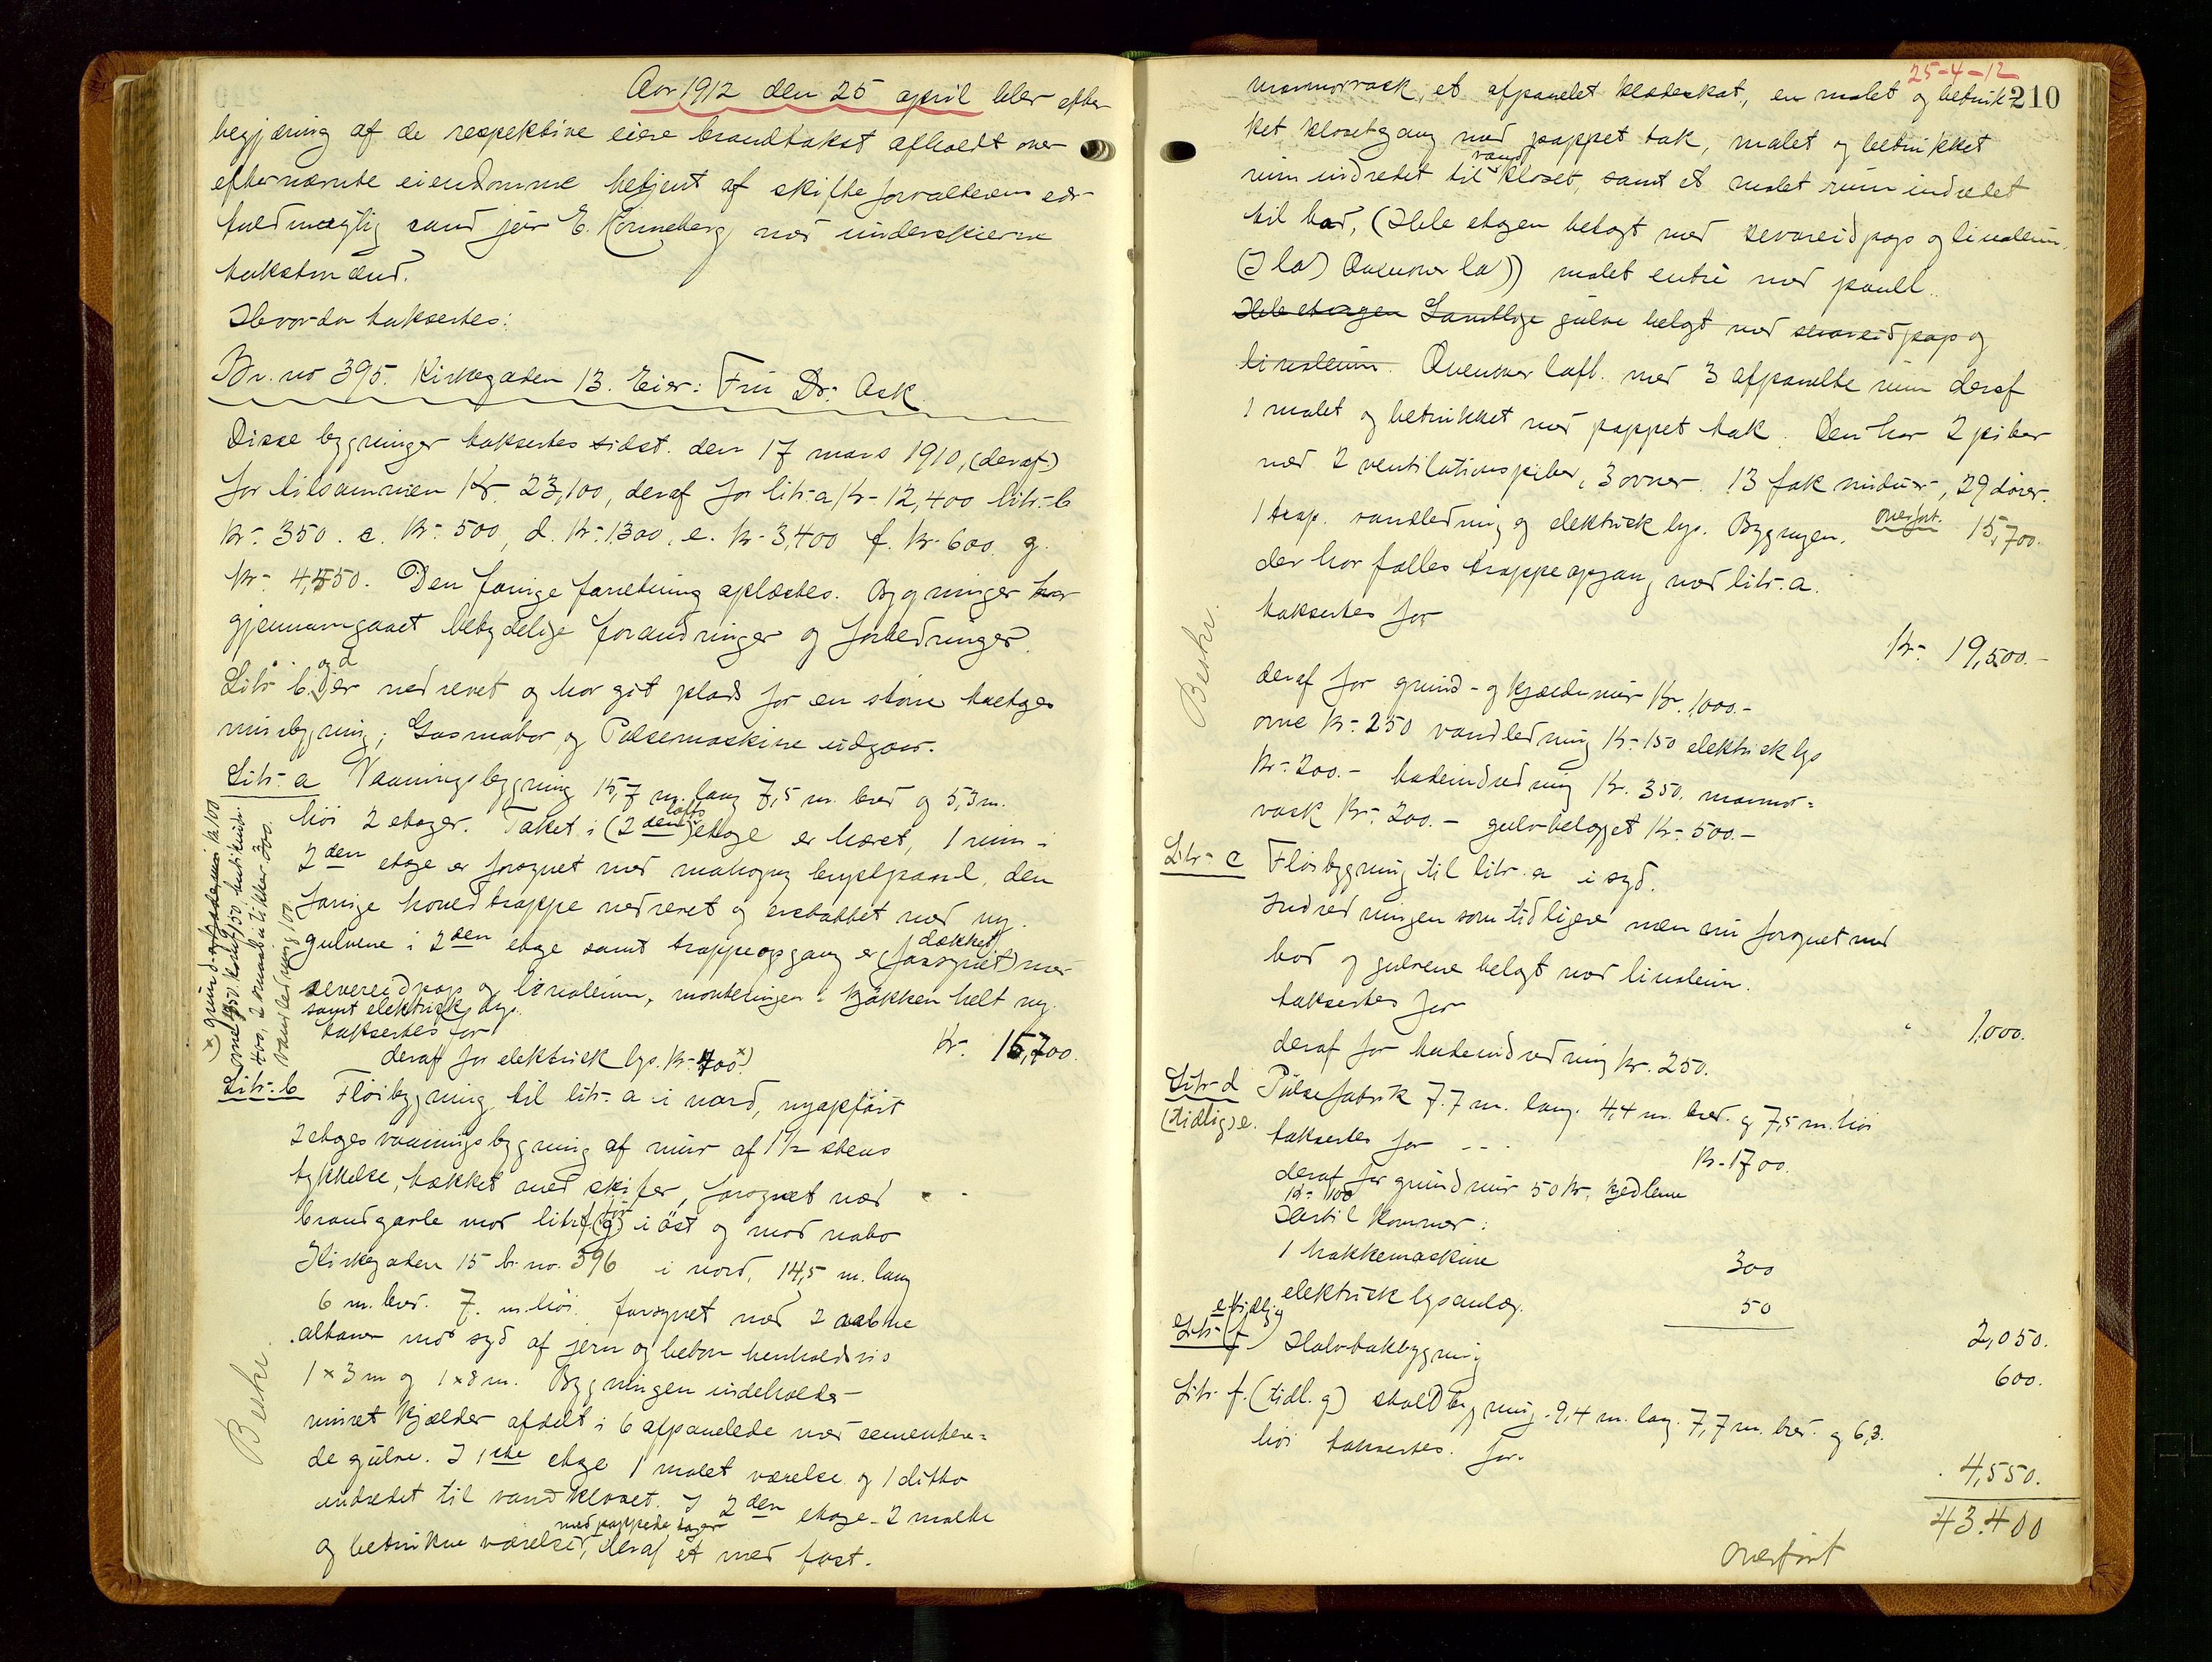 Aar 1912 den 25 april blev efter
begjæring af de respektive eiere brandtakst afholdt over
efternævnte eiendomme betjent af skifteforvalterens edsv
fuldmægtig cand jur E. Konneberg med underskrevne
takstmænd.
Hvorda taksertes:
Br. no 395. Kirkegaden 13. Eier: Fru Dr: Ask
Disse bygninger taksertes sidst den 17 mars 1910, (deraf)
for tilsammen Kr 23,100, deraf for litr. a Kr. 12,400 litr. b
Kr. 350. c. Kr. 500, d. Kr. 1300, e. Kr. 3,400 f. Kr. 600. g.
Kr. 4,550. Den forrige forretning oplæstes. Bygninger har
gjennemgaaet betydelige forandringer og forbedringer.
Litr b. og d er nedrevet og har git plads for en større toetages
mursbygning; Gasmotor og Pølsemaskine udgaar.
Litr. a Vaaningsbygning 15,7 m. lang 7,5 m. bred og 5,3 m.
høi 2 etager. Taket i (2den) lofts etage er hævet, 1 rum i
2den etage er forsynet med mahogny brystpanel, den
forrige hovedtrappe nedrevet og erstattet med ny.
gulvene i 2den etage samt trappeopgang er (forsynet) dækket med
severeidpap og linoleum, monteringen i kjøkken helt ny.
samt elektrisk lys.
taksertes for Kr. 15,700.
deraf for elektrisk lys. Kr. 400 x)
x) grund- og
400,
vandledning 100.
Litr. b Fløibygning til litr. a i nord, nyopført
2 etages vaaningsbygning af mur af 1½ stens
tykkelse, tækket med skifer, forsynet med
brandgavle mod litr f (g) i øst og mod nabo
Kirkegaden 15 br. no. 396 i nord, 14,5 m. lang
6 m. bred. 7. m. høi. forsynet med 2 aabne
altaner mod syd af jern og beton henholdsvis
1 x 3 m og 1 x 8 m. Bygningen indeholder
Beskr.
muret kjælder afdelt i 6 afpanelede med cementere=
de gulve. I 1ste etage 1 malet værelse og 1 ditto
indredet til vandkloset. I 2den etage 2 malte
og betrukne værelser, med pappede tager deraf et med fast.
25-4-12
210
marmorvask, et afpanelet klædeskat, en malet og betruk-
ket klosetgang med pappet tak, malet og betrukket
rum indredet til vandkloset, samt et malet rum indredet
til bad, (Hele etagen belagt med severeidpap og linoleum.
(I la) Ovenover la)) malet entre med panel.
Hele etagen Samtlige gulve belagt med severeidpap og
linoleum. Ovenover loft. med 3 afpanelte rum deraf
1 malet og betrukket med pappet tak. Den har 2 piber
med 2 ventilationspiber, 3 ovner. 13 fak vinduer, 29 dører.
1 trap. vandledning og elektrisk lys. Bygningen, overført. 15,700.
der har fælles trappeopgang med litr. a.
taksertes for Kr. 19,500.-
Beskr.
deraf for grund- og kjældermur Kr. 1,000.-
ovne Kr. 250 vandledning Kr. 150 elektrisk lys
Kr. 200.- badeindredning Kr. 350. marmor=
vask Kr. 200.- gulvbelægget Kr. 500.-
Litr. c Fløibygning til litr. a i syd.
Indredningen som tidligere men nu forsynet med
bad og gulvene belagt med linoleum.
taksertes for 1,000.
deraf for badeindredning Kr. 250.
Litr. d (tidlig) e. Pølsefabrik 7.7 m. lang. 4,4 m. bred. og 7,5 m. høi
taksertes for --- Kr. 1700.
deraf for grundmur 50 Kr. kjedlerne
Kr. 100
Hertil kommer:
1 hakkemaskine 300
elektrisk lysanlæg. 50
2,050.
Litr. e (tidlig f) Halvtakbygning 600.
Litr. f. (tidl. g) staldbygning. 9,4 m. lang. 7,7 m. bred. og 6,3.
høi taksertes. for. 4,550.
43.400
Overført